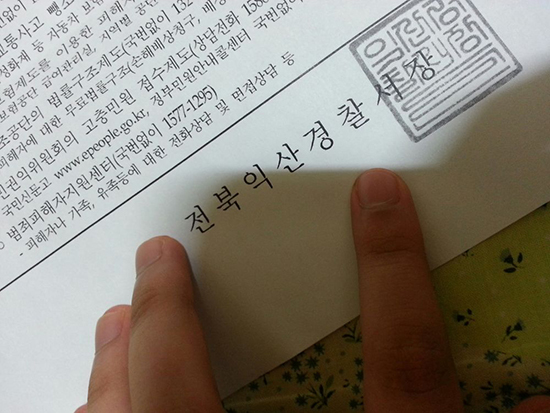 통사고 뺑소
정화제 등 자동차 보
험제도를 이용한 피해
보험공단 급여관리실, 지역별 공단
조공단의 법률구조제도(국번없이 132
피해자에 대한 무료법률구조(손해배상청구, 배
민권익위원회의 고충민원 접수제도(상담전화 158
국민신문고 www.epeople.go.kr, 정부민원안내콜센터 국번없이
○ 범죄피해자지원센터(국번없이 1577-1295)
- 피해자나 가족, 유족등에 대한 전화상담 및 면접상담 등
전북익산경찰서장